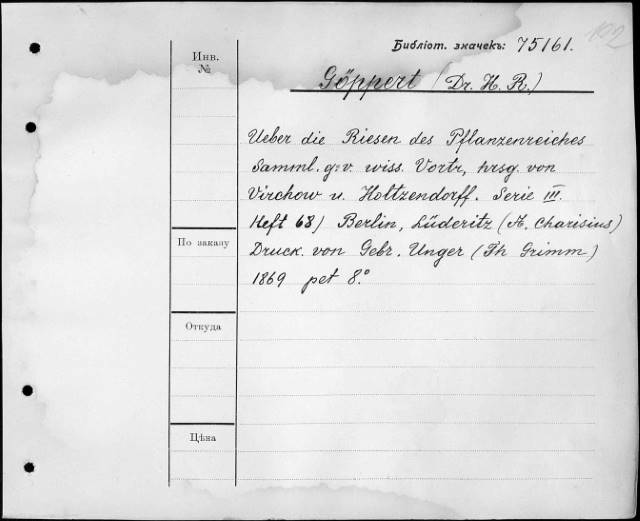 102
Библіот. значекъ: 75161.
Инв.
№
Göppert (Dr. H. R.)
Ueber die Riesen des Pflanzenreiches
Samml. g:v. wiss. Vortr, hrsg. von
Virchow u. Holtzendorff. Serie III.
Heft 68) Berlin, Lüderitz (A. Charisius)
По заказу
Druck. von Gebr. Unger (Th Grimm)
1869 pet 8.º
Откуда
Цѣна